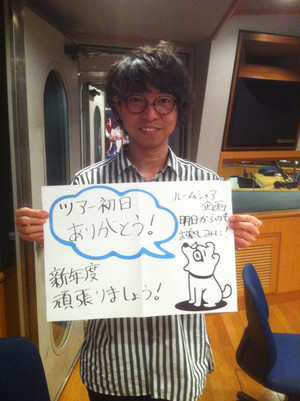 ツアー初日
ありがとう！
新年度
頑張りましょう！
ルームシェア
企画
明日からのも
お楽しみに！